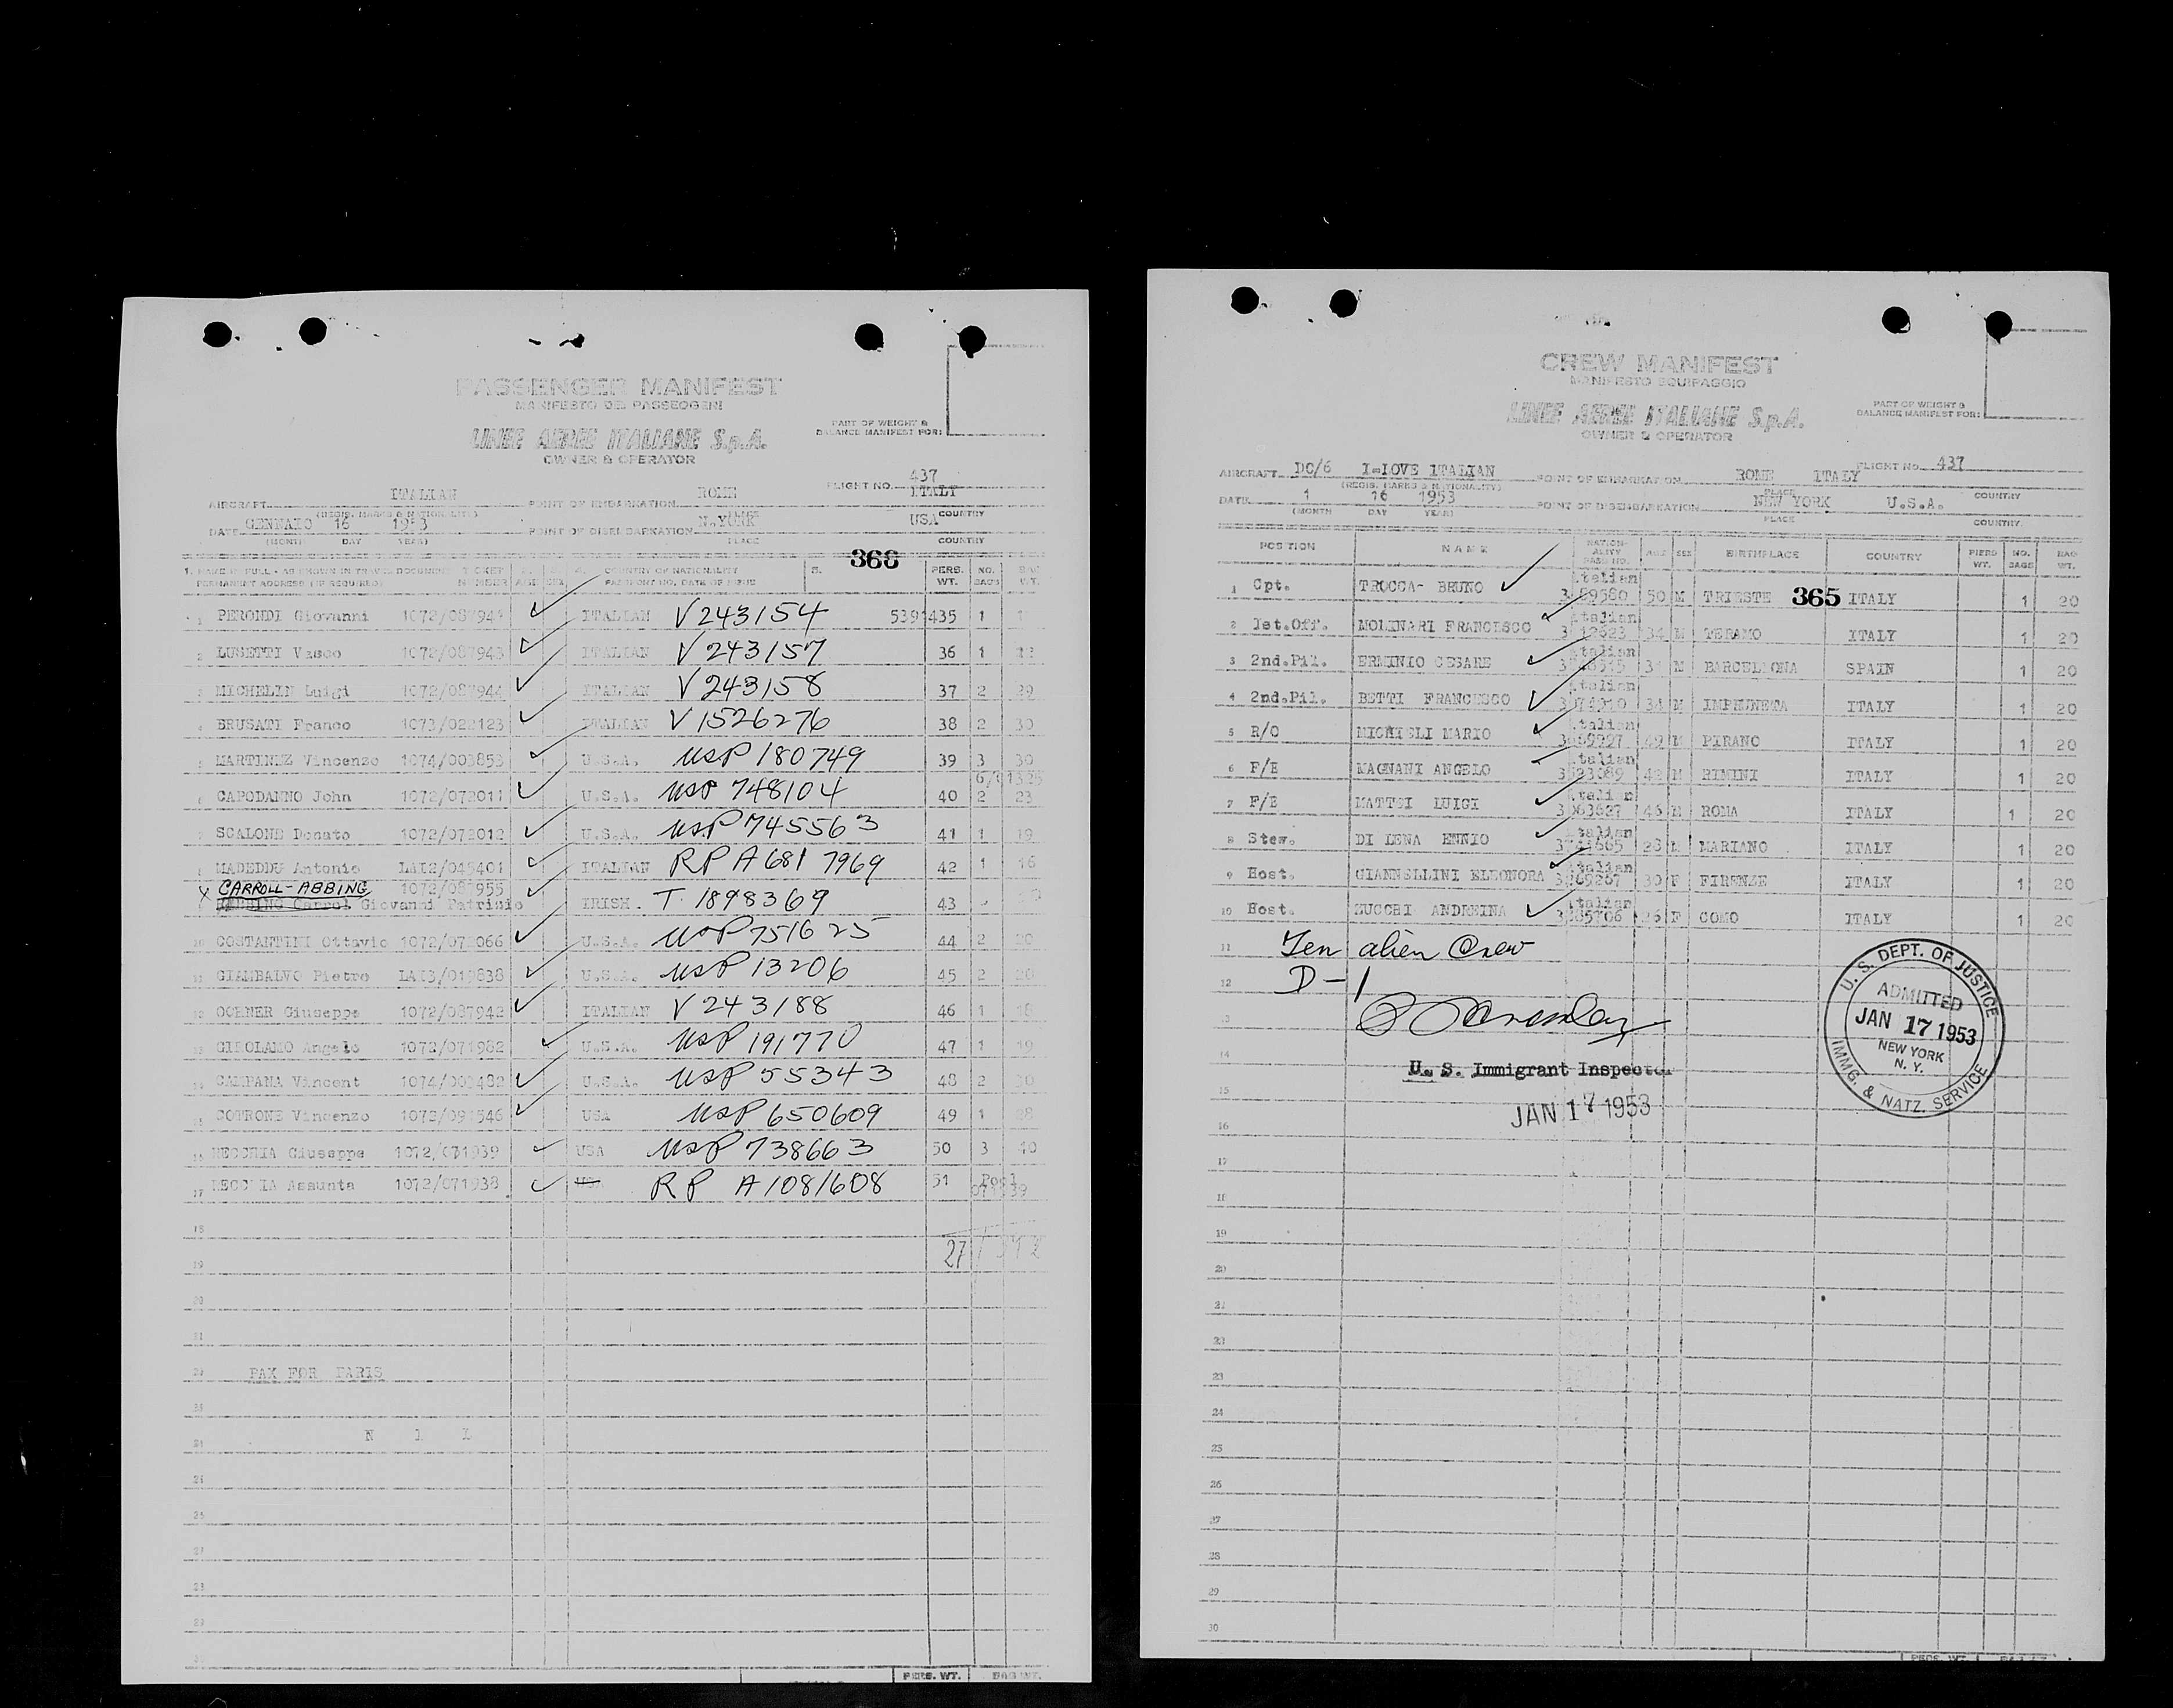 PASSENGER MANIFEST
MANIFESTO DEI PASSEGGERI
LINEE AEREE ITALIANE S.p.A.
OWNER & OPERATOR
PART OF WEIGHT &
BALANCE MANIFEST FOR:
FLIGHT NO. 437
AIRCRAFT ITALIAN POINT OF EMBARKATION ROME ITALY
(REGIS. MARKS & NATIONALITY) PLACE COUNTRY
DATE GENNAIO 16 1953 POINT OF DISEMBARKATION N.YORK USA
(MONTH DAY YEAR) PLACE COUNTRY
366
1. NAME IN FULL - AS SHOWN IN TRAVEL DOCUMENT TICKET COUNTRY OF NATIONALITY 5. PERS. NO.
PERMANENT ADDRESS (IF REQUIRED) NUMBER AGE SEX PASSPORT NO. DATE OF ISSUE WT. BAGS WT.
1 PERONDI Giovanni ITALIAN V 243154 539435 1
2 LUSETTI Vasco 1072/087943 ITALIAN V 243157 36 1
3 MICHELIN Luigi 1072/087944 ITALIAN V 243158 37 2 29
4 BRUSATI Franco 1073/022123 ITALIAN V 1526276 38 2 30
5 MARTINEZ Vincenzo 1074/003853 U.S.A. USP 180749 39 3 30
6 CAPODANNO John 1072/072011 U.S.A. USP 748104 40 2 23
7 SCALONE Donato 1072/072012 U.S.A. USP 745563 41 1 19
8 MADEDDU Antonio LAI2/045401 ITALIAN RP A6817969 42 1 16
X CARROLL-ABBING 1072/087955
ABBING Carrol Giovanni Patrizio IRISH. T. 1898369 43
10 COSTANTINI Ottavio 1072/072066 U.S.A. USP 751625 44 2 20
11 GIAMBALVO Pietro LAI3/019838 U.S.A. USP 13206 45 2 20
12 CORNER Giuseppe 1072/087942 ITALIAN V 243188 46 1 18
13 GIROLAMO Angelo 1072/071982 U.S.A. USP 191770 47 1 19
14 CAMPANA Vincent 1074/003482 U.S.A. USP 55343 48 2 30
15 COTRONE Vincenzo 1072/091546 USA USP 650609 49 1 28
16 RECCHIA Giuseppe 1072/071939 USA USP 738663 50 3 40
17 RECCHIA Assunta 1072/071938 USA RP A1081608 51 Pool
18
27
19
20
21
22 PAX FOR PARIS
23
24 N I L
25
27
28
29
PERS. WT. BAG WT.
CREW MANIFEST
MANIFESTO EQUIPAGGIO
LINEE AEREE ITALIANE S.p.A.
OWNER & OPERATOR
PART OF WEIGHT &
BALANCE MANIFEST FOR:
AIRCRAFT DC/6 I-LOVE ITALIAN POINT OF EMBARKATION ROME ITALY FLIGHT NO. 437
(REGIS. MARKS & NATIONALITY) PLACE COUNTRY
DATE 1 16 1953 POINT OF DISEMBARKATION NEW YORK U.S.A.
(MONTH DAY YEAR) PLACE COUNTRY
POSITION NAME NATION-ALITY PASS NO. AGE SEX BIRTHPLACE COUNTRY PERS WT. NO. BAGS BAG WT.
1 Cpt. TROCCA- BRUNO Italian 50 M TRIESTE 365 ITALY 1 20
2 1st.Off. MOLINARI FRANCESCO Italian 34 M TERAMO ITALY 1 20
3 2nd.Pil. ERMINIO CESARE Italian M BARCELLONA SPAIN 1 20
4 2nd.Pil. BETTI FRANCESCO Italian 34 M IMPRUNETA ITALY 1 20
5 R/O MICHIELI MARIO Italian 49 M PIRANO ITALY 1 20
6 F/E MAGNANI ANGELO Italian 42 M RIMINI ITALY 1 20
7 F/E MATTEI LUIGI Italian 46 M ROMA ITALY 1 20
8 Stew. DI LENA ENNIO Italian 28 M MARIANO ITALY 1 20
9 Host. GIANNELLINI ELEONORA Italian 30 F FIRENZE ITALY 1 20
10 Host. ZUCCHI ANDREINA Italian 26 F COMO ITALY 1 20
11 Ten alien Crew
12 D-1
13
14 U. S. Immigrant Inspector
15 JAN 17 1953
U. S. DEPT. OF JUSTICE
ADMITTED
JAN 17 1953
NEW YORK
N. Y.
IMMG. & NATZ. SERVICE
16
17
18
19
20
21
22
23
24
25
26
27
28
29
30
PERS. WT.